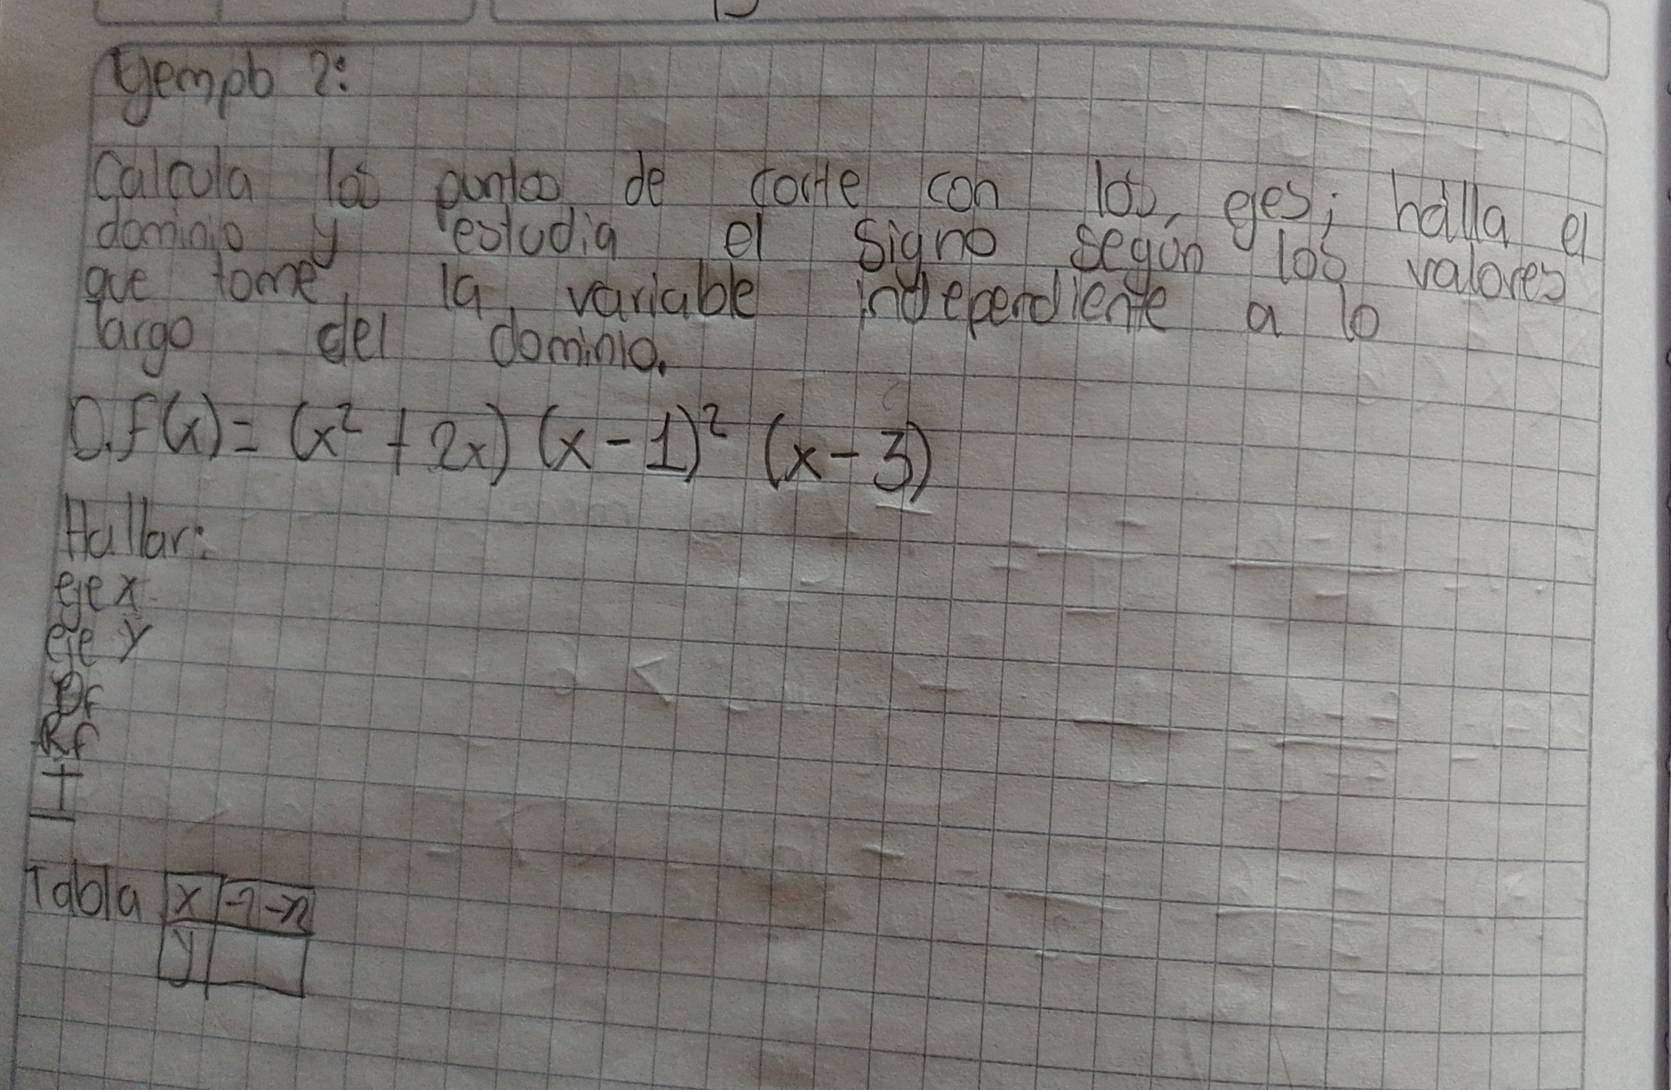 Ejemplo 2:
Calcula los puntos de corte con los ejes; halla el
dominio y estudia el signo según los valores
que tome la variable independiente a lo
largo del dominio.
D. f(x) = (x² + 2x) (x - 1)² (x - 3)
Hallar:
eje x
eje y
Df
Rf
+
-
Tabla x
y